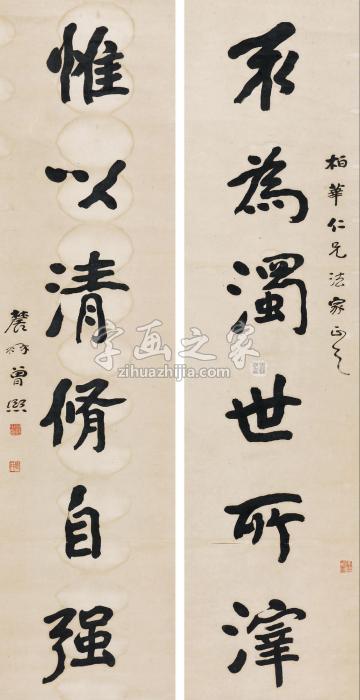 柏華仁兄法家正之
不為濁世所滓
惟以清脩自强
農髯曾熙
字画之家
zihuazhijia.com